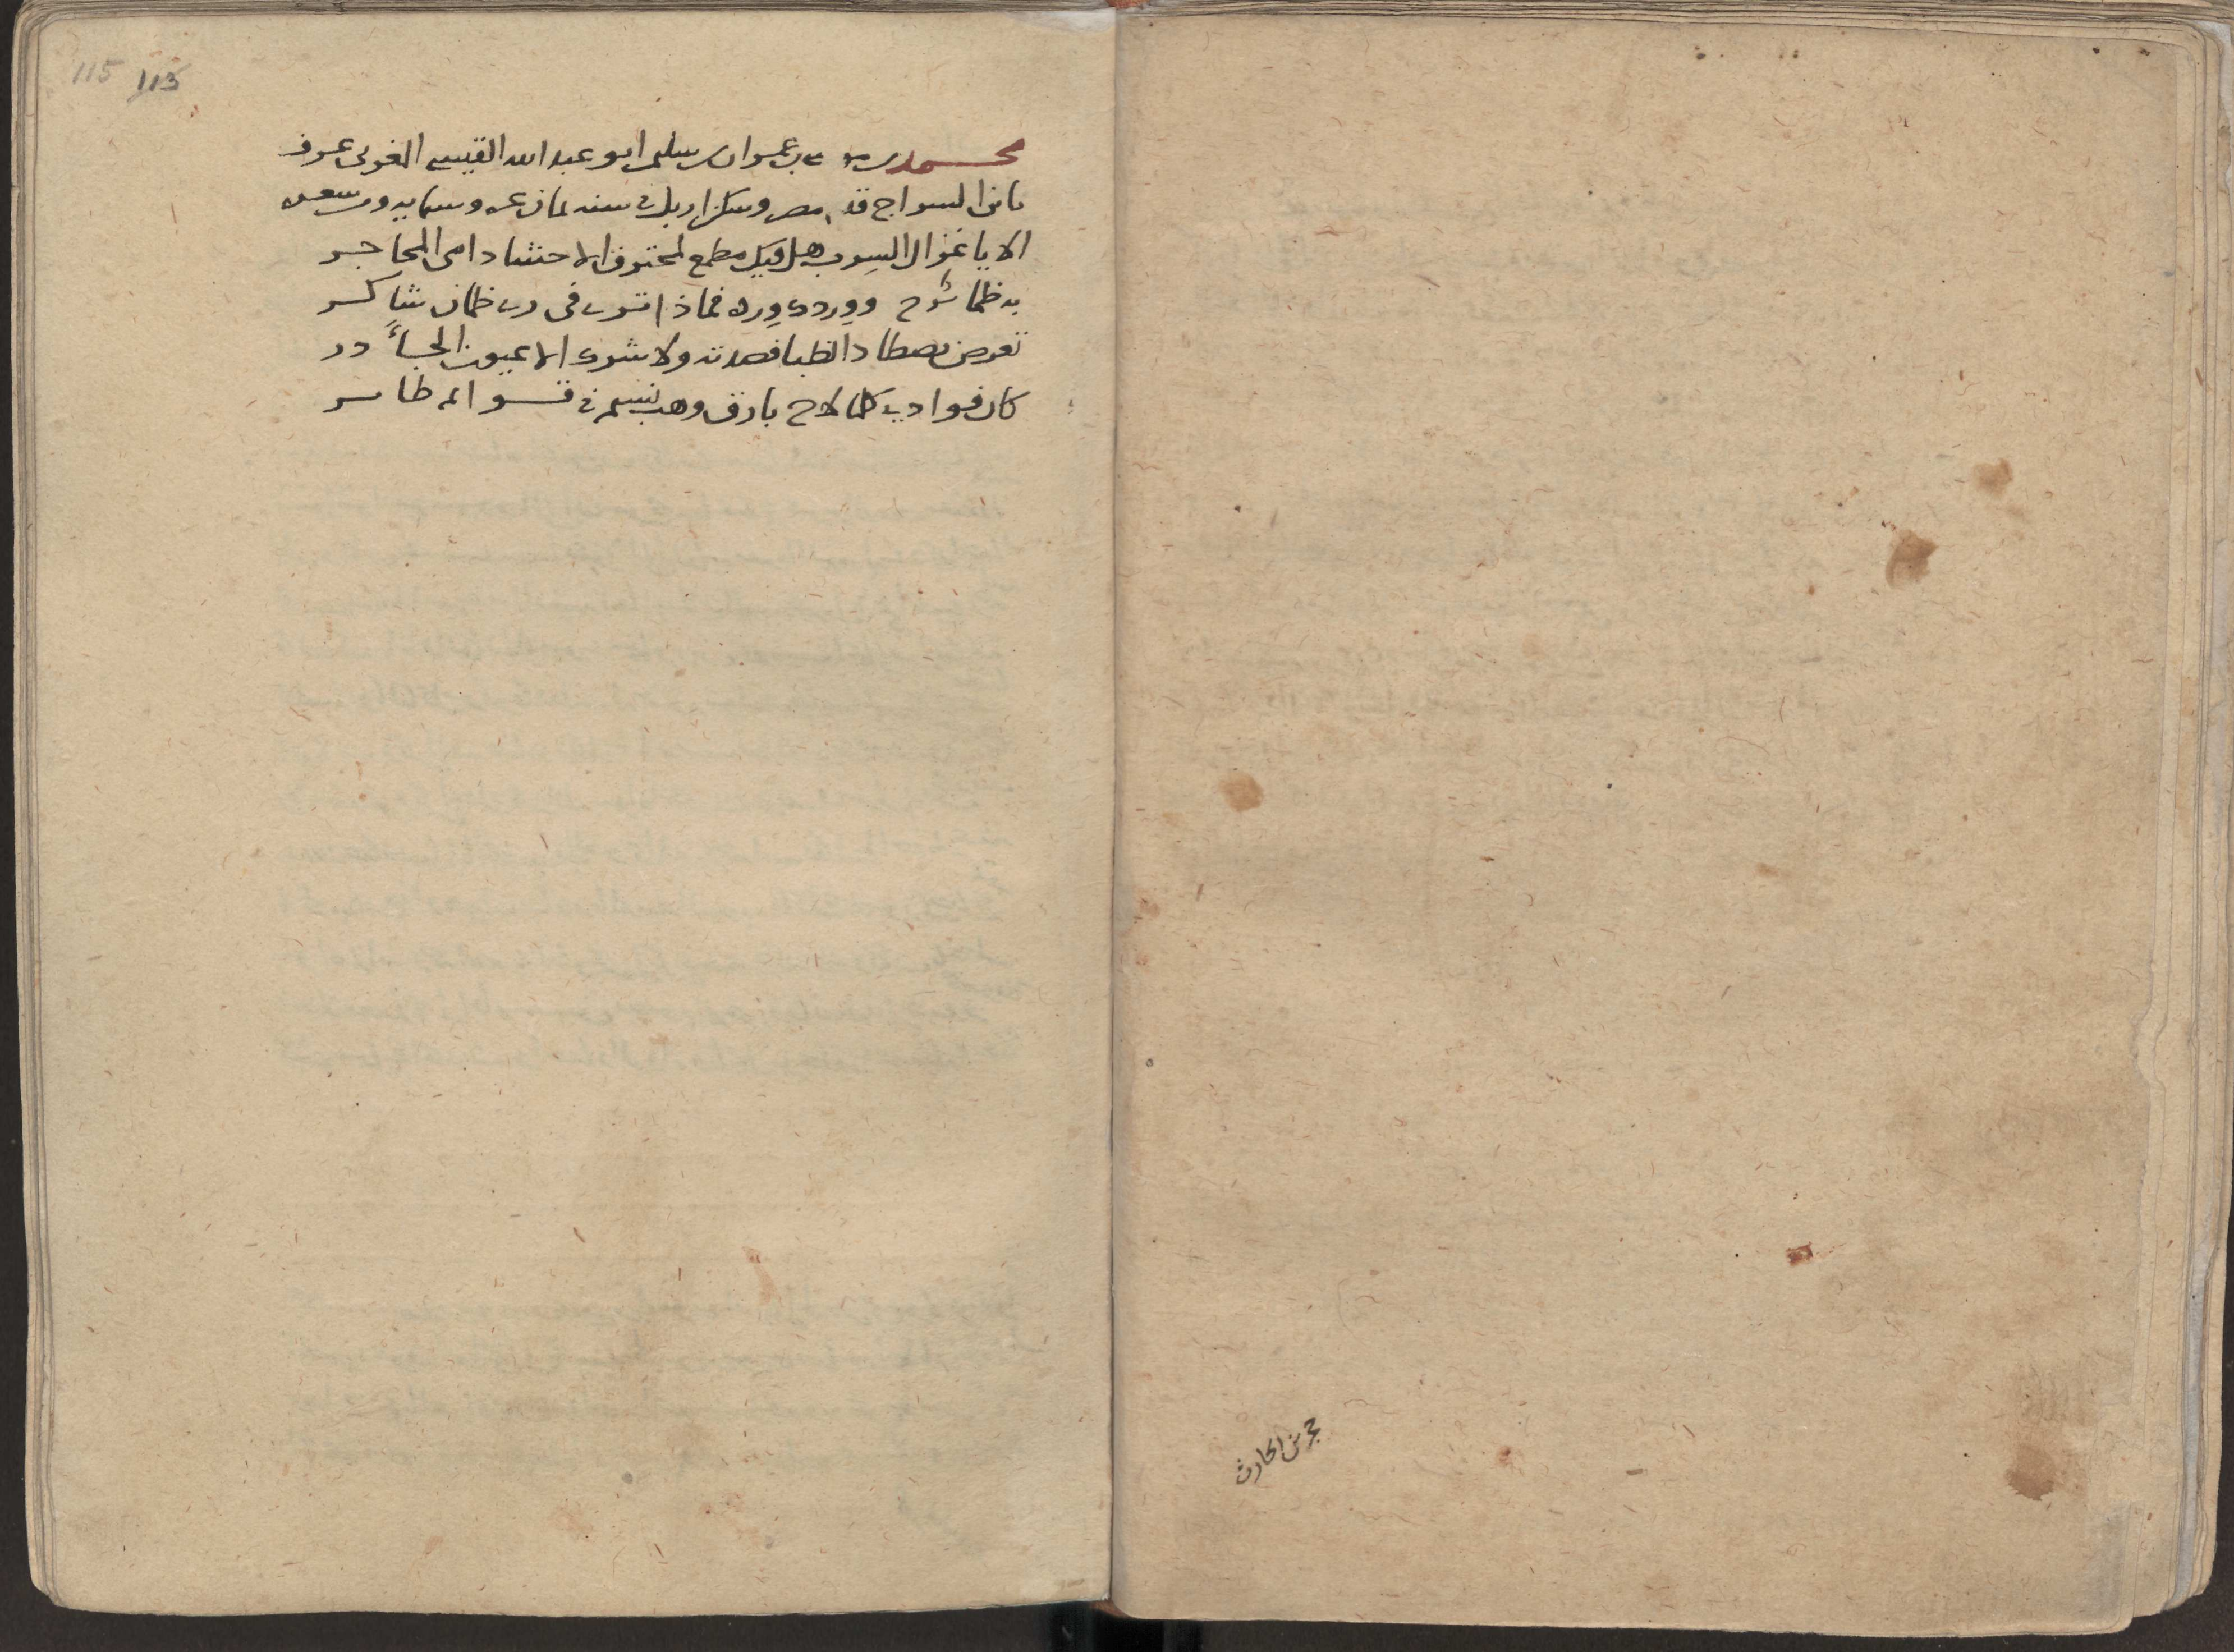 115 113
محمد بن عمران سليم ابو عبد الله القيسي الغربي عرف
بابن السراج قدم مصر وسكن اربل في سنه ثمان عشره وستمايه ومن شعره
الا يا غزال السرب هل فيك مطمع لمحترق الاحشا دامى المحاجر
به ظما وورد ورده فماذا ترى فى رى ظمان شاكر
تعرض يصطاد الظبا فصدنه ولا شرك الا عيون الجآ در
كان فوادي كلما لاح بارق وهب نسيم في طاير
الحارث